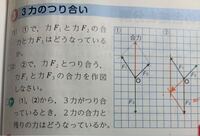 3力のつり合い
①で、力F₁と力F₂の合
力と力F₃はどうなっている
か。
②で、力F₁とつり合う、
力F₂と力F₃の合力を作図し
なさい。
(1)、(2)から、3力がつり合
っているとき、2力の合力と
残りの力はどうなっているか。
①
合力
F₁
F₂
F₃
②
F₁
F₂